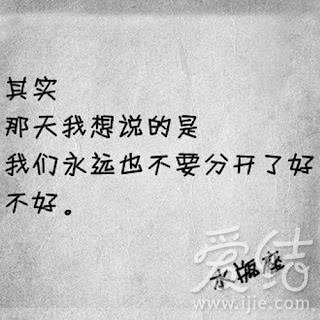 其实
那天我想说的是
我们永远也不要分开了好
不好。
水瓶座
爱结
www.ijie.com